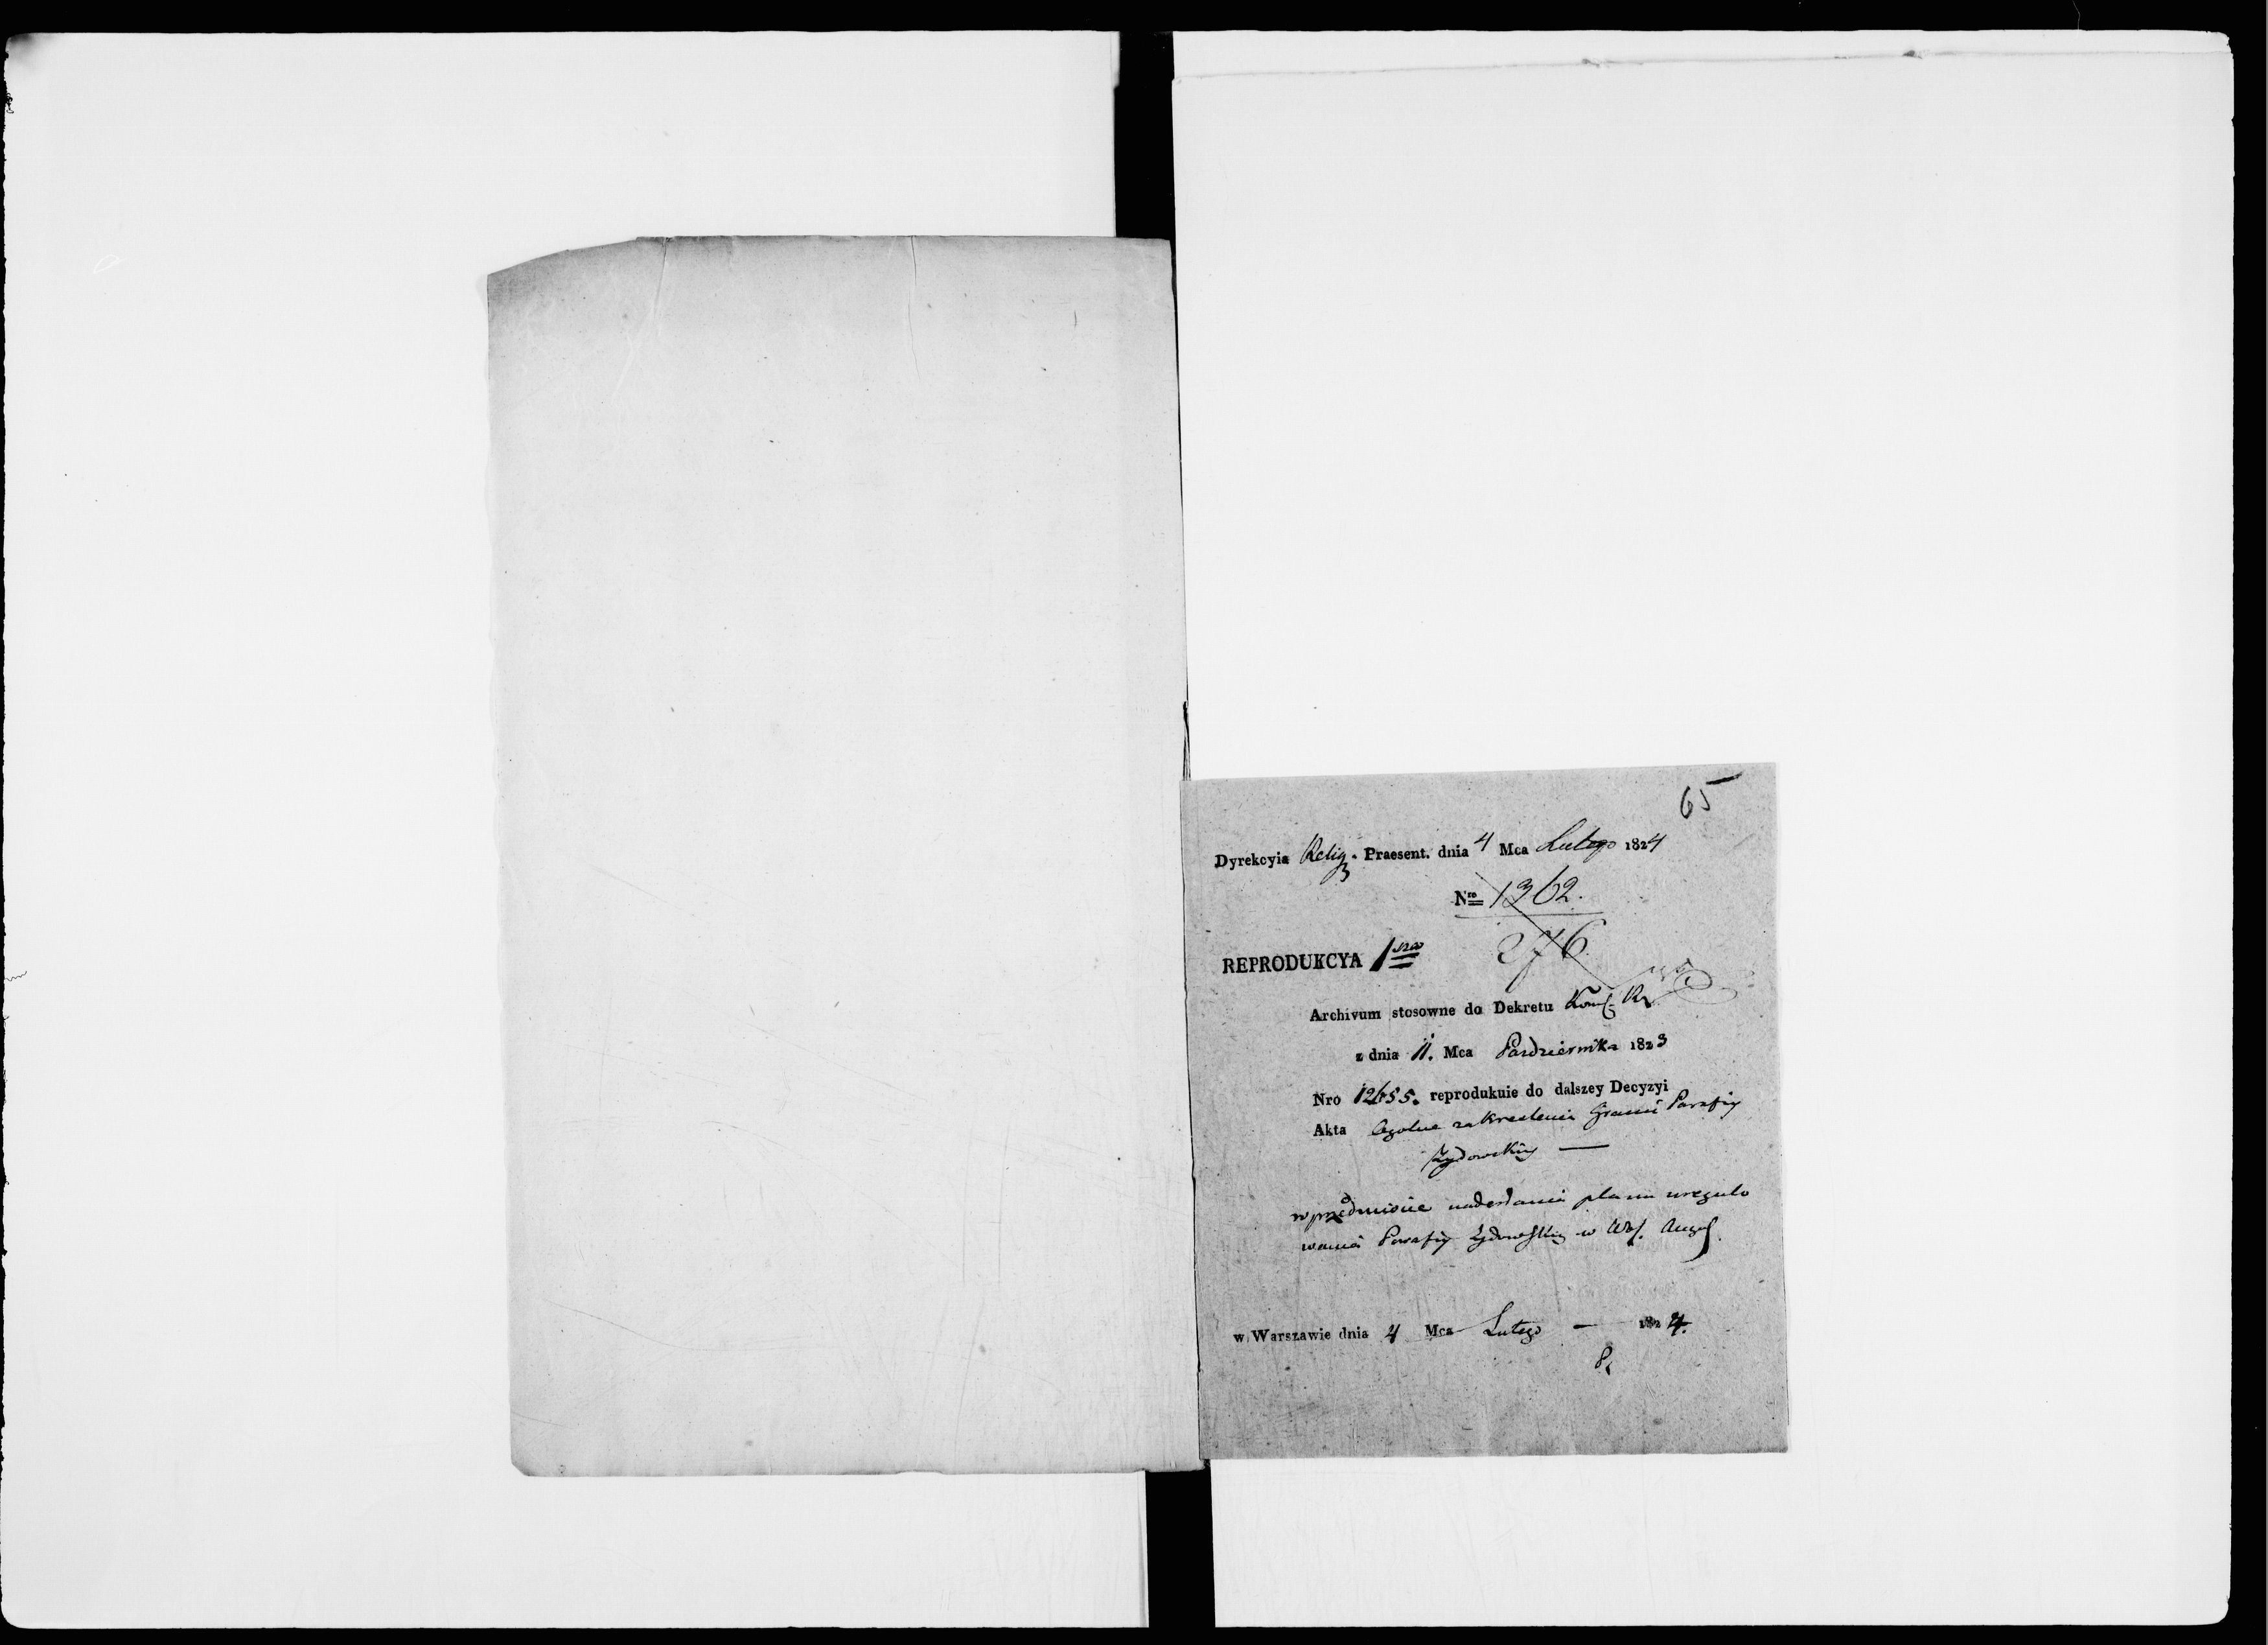 65
Dyrekcyia Relig. Praesent. dnia 4 Mca Lutego 1824
Nro 1362.
276
REPRODUKCYA 1sza
Archivum stosowne do Dekretu Komſ. Rz
z dnia 11. Mca Pazdziernika 1823
Nro 12655. reprodukuie do dalszey Decyzyi
Akta Ogolne zakreslenia Granic Parafiy
Zydowskiey —
w przedmiocie nadesłania planu uregulo
wania Parafiy Zydowskiey w Woſ. Auguſ.
w Warszawie dnia 4 Mca Lutego — 1824.